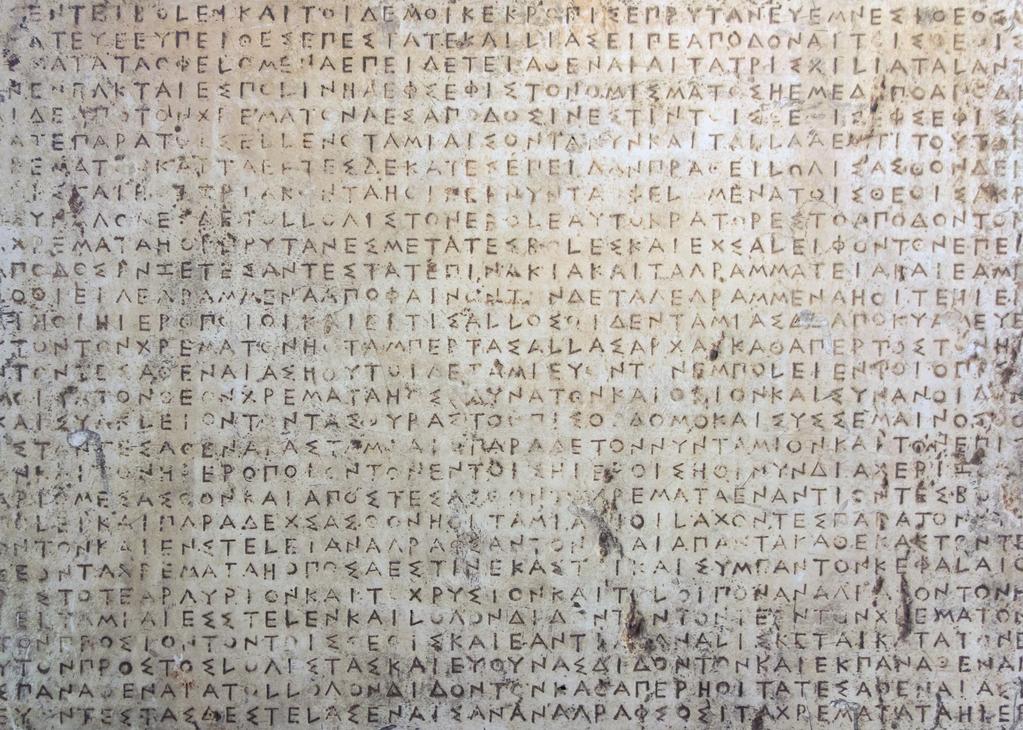 ΕΝΤΕΙΒΟΛΕΙΚΑΙΤΟΙΔΕΜΟΙΚΕΚΡΟΠΙΣΕΠΡΥΤΑΝΕΥΕΜΝΕΣΙΘΕΟΣ
ΑΤΕΥΕΕΥΠΕΙΘΕΣΕΠΕΣΤΑΤΕΚΑΛΛΙΑΣΕΙΠΕΑΠΟΔΟΝΑΙΤΟΙΣΘΕΟΙΣ
ΜΑΤΑΤΑΟΦΕΛΟΜΕΝΑΕΠΕΙΔΕΤΕΙΑΘΕΝΑΙΑΙΤΑΤΡΙΣΧΙΛΙΑΤΑΛΑΝΤ
ΝΕΝΕΓΚΤΑΙΕΣΠΟΛΙΝΗΑΕΦΣΕΦΙΣΤΟΝΟΜΙΣΜΑΤΟΣΗΕΜΕΔΑΠΟΑΠΟΔΙ
ΙΔΕΑΠΟΤΟΝΧΡΕΜΑΤΟΝΗΑΕΣΑΠΟΔΟΣΙΝΕΣΤΙΝΤΟΙΣΘΕΟΙΣΕΦΣΕΦΙΣ
ΑΤΕΠΑΡΑΤΟΙΣΕΛΛΕΝΟΤΑΜΙΑΙΣΟΝΤΑΝΥΝΚΑΙΤΑΛΛΑΑΕΣΤΙΤΟΥΤΟ
ΡΕΜΑΤΟΝΚΑΙΤΑΕΚΤΕΣΔΕΚΑΤΕΣΕΠΕΙΔΑΝΠΡΑΘΕΙΛΟΓΙΣΑΣΘΟΝΔΕΗ
ΙΣΤΑΙΗΟΙΤΡΙΑΚΟΝΤΑΗΟΙΠΕΡΝΥΝΤΑΟΦΕΛΟΜΕΝΑΤΟΙΣΘΕΟΙΣΑΚΡ
ΣΥΝΑΓΟΓΕΣΔΕΤΟΛΛΟΓΙΣΤΟΝΕΒΟΛΕΑΥΤΟΚΡΑΤΟΡΕΣΤΟΑΠΟΔΟΝΤΟΝ
ΧΡΕΜΑΤΑΗΟΙΠΡΥΤΑΝΕΣΜΕΤΑΤΕΣΒΟΛΕΣΚΑΙΕΧΣΑΛΕΙΦΟΝΤΟΝΕΠΕΙ
ΑΠΟΔΟΣΙΝΖΕΤΕΣΑΝΤΕΣΤΑΤΕΠΙΝΑΚΙΑΚΑΙΤΑΓΡΑΜΜΑΤΕΙΑΚΑΙΕΑΜΠ
ΛΟΘΙΕΙΓΕΓΡΑΜΜΕΝΑΑΠΟΦΑΙΝΟΝΤΟΝΔΕΤΑΓΕΓΡΑΜΜΕΝΑΗΟΙΤΕΗΙΕΡ
ΙΗΟΙΗΙΕΡΟΠΟΙΟΙΚΑΙΕΙΤΙΣΑΛΛΟΣΟΙΔΕΝΤΑΜΙΑΣΔΕΑΠΟΚΥΑΜΕΥΕ
ΤΟΝΤΟΝΧΡΕΜΑΤΟΝΗΟΤΑΜΠΕΡΤΑΣΑΛΛΑΣΑΡΧΑΣΚΑΘΑΠΕΡΤΟΣΤΟΝΗΙ
ΤΟΝΤΕΣΑΘΕΝΑΙΑΣΗΟΥΤΟΙΔΕΤΑΜΙΕΥΟΝΤΟΝΕΜΠΟΛΕΙΕΝΤΟΙΟΠΙ
ΜΟΙΤΑΤΟΝΘΕΟΝΧΡΕΜΑΤΑΗΟΣΑΔΥΝΑΤΟΝΚΑΙΟΣΙΟΝΚΑΙΣΥΝΑΝΟΙΓΟΝ
ΑΙΣΥΓΚΛΕΙΟΝΤΟΝΤΑΣΘΥΡΑΣΤΟΟΠΙΣΘΟΔΟΜΟΚΑΙΣΥΣΣΕΜΑΙΝΟΣ
ΣΤΟΝΤΕΣΑΘΕΝΑΙΑΣΤΑΜΙΑΙΣΠΑΡΑΔΕΤΟΝΝΥΝΤΑΜΙΟΝΚΑΙΤΟΝΕΠΙΣ
ΙΤΟΝΗΙΕΡΟΠΟΙΟΝΤΟΝΕΝΤΟΙΣΗΙΕΡΟΙΣΗΟΙΝΥΝΔΙΑΧΕΡΙΖ
ΑΡΙΘΜΕΣΑΣΘΟΝΚΑΙΑΠΟΣΤΕΣΑΣΘΟΝΤΑΧΡΕΜΑΤΑΕΝΑΝΤΙΟΝΤΕΣΒΟΛ
ΟΛΕΙΚΑΙΠΑΡΑΔΕΧΣΑΣΘΟΝΗΟΙΤΑΜΙΑΙΗΟΙΛΑΧΟΝΤΕΣΠΑΡΑΤΟΝ
ΟΝΤΟΝΚΑΙΕΝΣΤΕΛΕΙΑΝΑΓΡΑΦΣΑΝΤΟΝΜΙΑΙΑΠΑΝΤΑΚΑΘΕΚΑΣΤΟΝΤ
ΕΟΝΤΑΧΡΕΜΑΤΑΗΟΠΟΣΑΕΣΤΙΝΕΚΑΣΤΟΙΚΑΙΣΥΜΠΑΝΤΟΝΚΕΦΑΛΑΙΟ
ΙΣΤΟΤΕΑΡΓΥΡΙΟΝΚΑΙΤΟΧΡΥΣΙΟΝΚΑΙΤΟΛΟΙΠΟΝΑΝΑΓΡΑΦΟΝΤΟΝΗ
ΕΙΤΑΜΙΑΙΕΣΣΤΕΛΕΝΚΑΙΛΟΓΟΝΔΙΔΟΝΤΟΝΤΟΝΤΕΟΝΤΟΝΧΡΕΜΑΤΟΝ
ΤΟΝΠΡΟΣΙΟΝΤΟΝΤΟΙΣΘΕΟΙΣΚΑΙΕΑΝΤΙΑΝΑΛΙΣΚΕΤΑΙΚΑΤΑΤΟΝΕ
ΥΤΟΝΠΡΟΣΤΟΣΛΟΓΙΣΤΑΣΚΑΙΕΥΘΥΝΑΣΔΙΔΟΝΤΟΝΚΑΙΕΚΠΑΝΑΘΕΝΑΙ
ΣΠΑΝΑΘΕΝΑΙΑΤΟΛΛΟΓΟΝΔΙΔΟΝΤΟΝΚΑΘΑΠΕΡΗΟΙΤΑΤΕΣΑΘΕΝΑΙΑΣ
ΕΥΟΝΤΕΣΤΑΣΔΕΣΤΕΛΑΣΕΝΑΙΣΑΝΑΝΑΓΡΑΦΣΟΣΙΤΑΧΡΕΜΑΤΑΤΑΗΙΕΡ